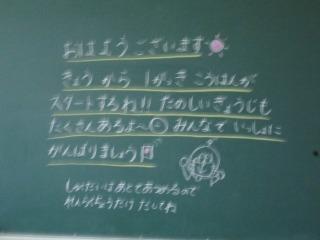 おはようございます
きょう から 1がっき こうはんが
スタートするね!! たのしいぎょうじも
たくさんあるよ〜 みんなで いっしょに
がんばりましょう
しゅくだいは あとで あつめるので
れんらくちょうだけ だしてね